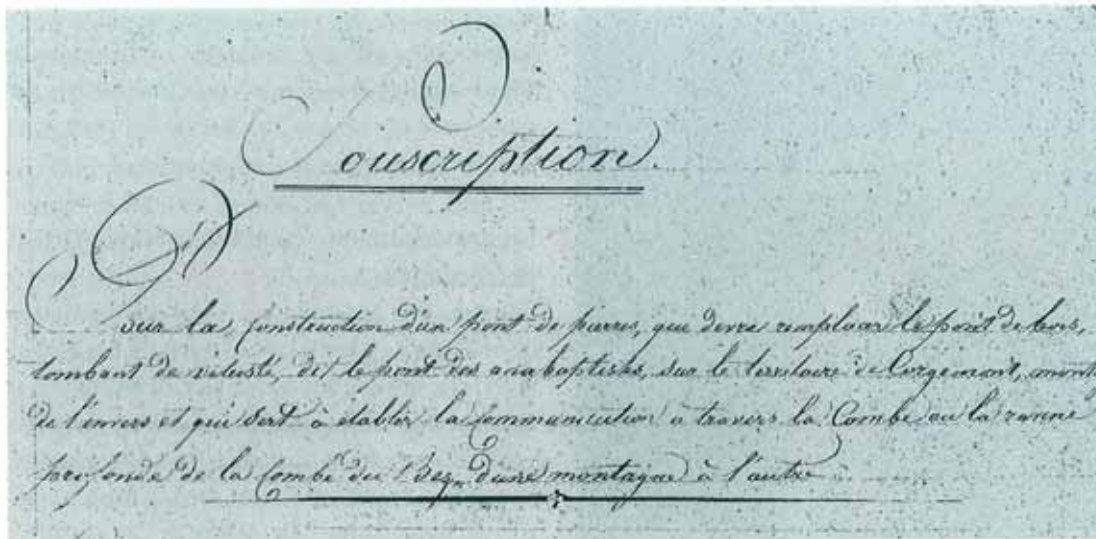 Souscription.
sur la construction d'un pont de pierres, que devra remplacer le pont de bois,
tombant de vétusté, dit le pont des anabaptistes, sur le territoire de Corgemont, mont
de l'envers et qui sert à établir la communication à travers la Combe ou la
profonde de la Combe du Bez, d'une montagne à l'autre